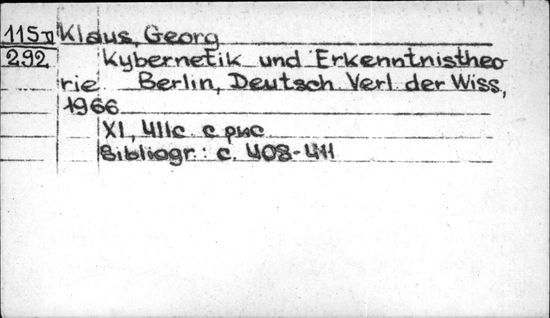 115 II Klaus, Georg
292 Kybernetik und Erkenntnistheo
rie Berlin, Deutsch. Verl. der Wiss,
1966
XI, 411c. с рис
Bibliogr: c. 408-411